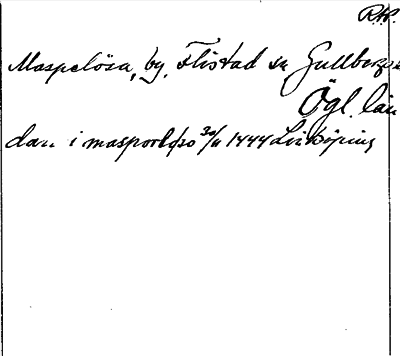 RAP.
Maspelösa, by, Flistad sn Gullbergs
Ögl. län
dan i masporløso 30/11 1444 Linköping